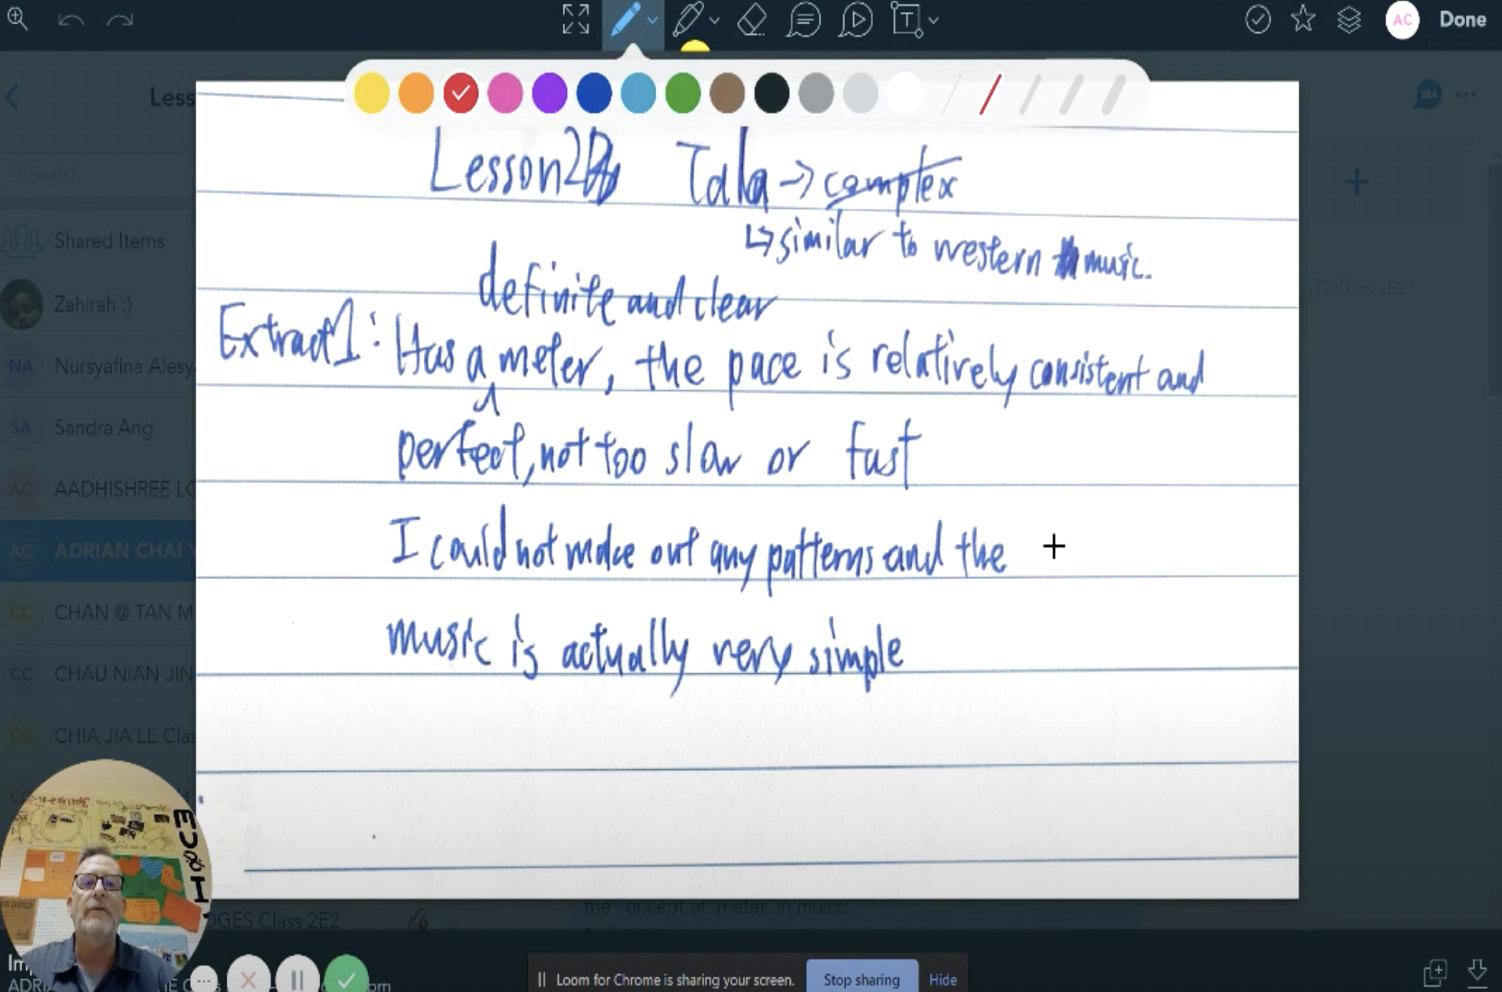 AC Done
Less
Search
Shared Items
Zahirah :)
NA Nursyafina Alesy
SA Sandra Ang
AC AADHISHREE LO
AC ADRIAN CHAI Y
CC CHAN @ TAN M
CC CHAU NIAN JIN
CC CHIA JIA LE Clas
Lesson 2 Tala → complex
↳ similar to western music.
definite and clear
Extract 1: Has a meter, the pace is relatively consistent and
perfect, not too slow or fast
I could not make out any patterns and the
music is actually very simple
DGES Class 2E2
the concept of 'meter' in music.
Loom for Chrome is sharing your screen. Stop sharing Hide